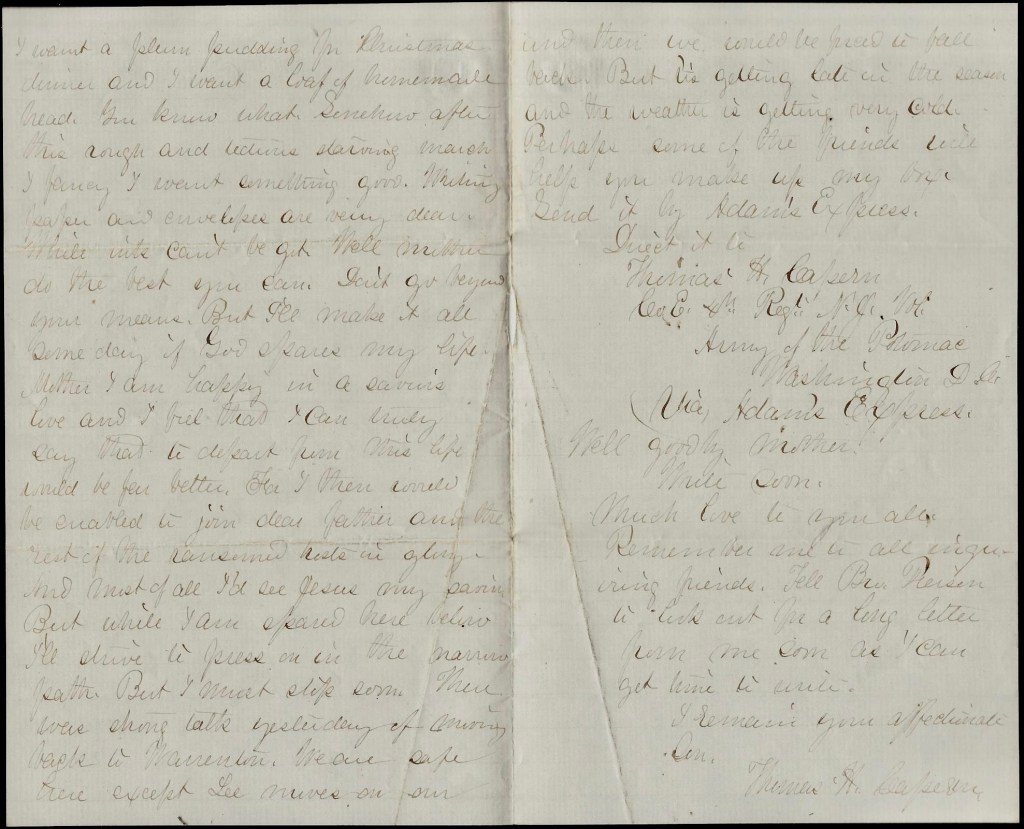 I want a plum pudding for Christmas
dinner and I want a loaf of homemade
bread. You know what. Somehow after
this rough and tedious starving march
I fancy I want something good. Writing
paper and envelopes are very dear.
While  can't be got. Well mother
do the best you can. Don't go beyond
your means. But I'll make it all
some day if God spares my life.
Mother I am happy in a saviors
love and I feel that I can truly
say that to depart from this life
would be far better. For I then would
be enabled to join dear father and the
rest of the ransomed hosts in glory.
And most of all I'd see Jesus my savior
But while I am spared here below
I'll strive to press on in the narrow
path. But I must stop soon. There
was strong talk yesterday of moving
back to Warrenton. We are safe
here except Lee moves on our
and then we would be  to fall
back. But its getting late in the season
and the weather is getting very cold.
Perhaps some of the friends will
help you make up my box.
Send it by Adam's Express.
Direct it to
Thomas H. Capern
Co. E.  Regt. N.J. Vol.
Army of the Potomac
Washington D.C.
(Via, Adam's Express.
Well goodby mother.
Write soon.
Much love to you all.
Remember me to all inqui-
ring friends. Tell Bro. Pierson
to look out for a long letter
from me soon as I can
get time to write.
I remain your affectionate
Son.
Thomas H. Capern